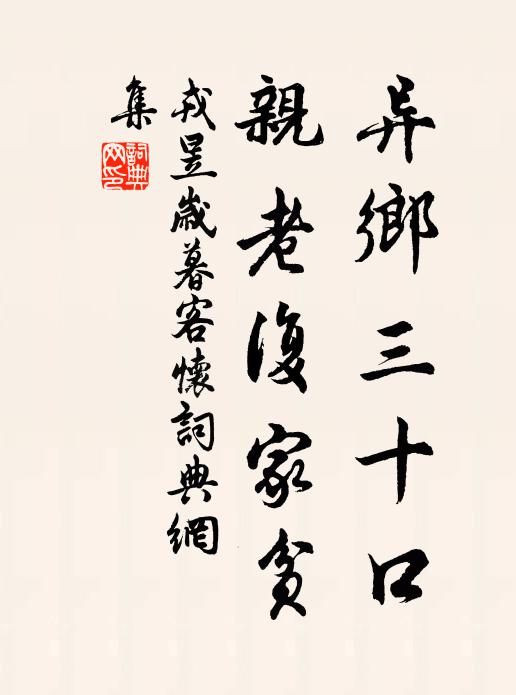 异鄉三十口
親老復家貧
戎昱歲暮客懷詞典網
集
詞典
网印